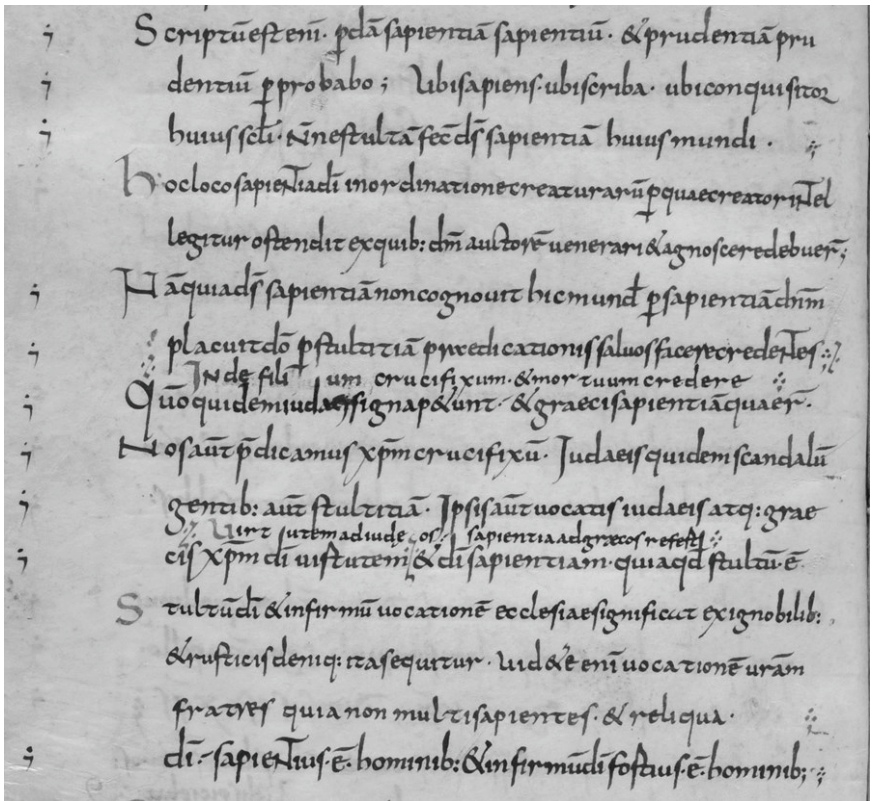 Scriptū est enī · ꝑdā sapientiā sapientiū · & prudentiā pru
dentiū ꝑprobabo ; Ubi sapiens · ubi scriba · ubi conquisitor
huius scłi · Nne stultā fec̄ ds̄ sapientiā huius mundi ·
hoc loco sapientia dī in ordinatione creaturarū ꝑ quae creator intel
legitur ostendit ex quib: dm̄ auctorē venerari & agnoscere debuer̄ ;
Nā quia ds̄ sapientiā non cognovit hic mund̄ ꝑ sapientiā dnm̄
placuit dō ꝑ stultitiā praedicationis salvos facere credentes
Inde filium crucifixum · & mortuum credere
Quō quidem iudaei signa p&unt · & graeci sapientiā quaer̄ ·
Nos aut̄ p̄dicamus xp̄m crucifixū · Judaeis quidem scandalū
gentib: aut̄ stultitiā · Ipsis aut̄ vocatis iudaeis atq: grae
Virt autem ad iudeos sapientia ad grecos refert
cis xp̄m dī virtutem & dī sapientiam · quia qd̄ stultū ē
Stultū dī & infirmū vocationē ecclesiae significat ex ignobilib:
& rusticis deniq: ita sequitur · Uid&e enī vocationē vrām
fratres quia non multi sapientes · & reliqua ·
dī · sapientius · ē · hominib: & infirmū dī fortius · ē · hominib;